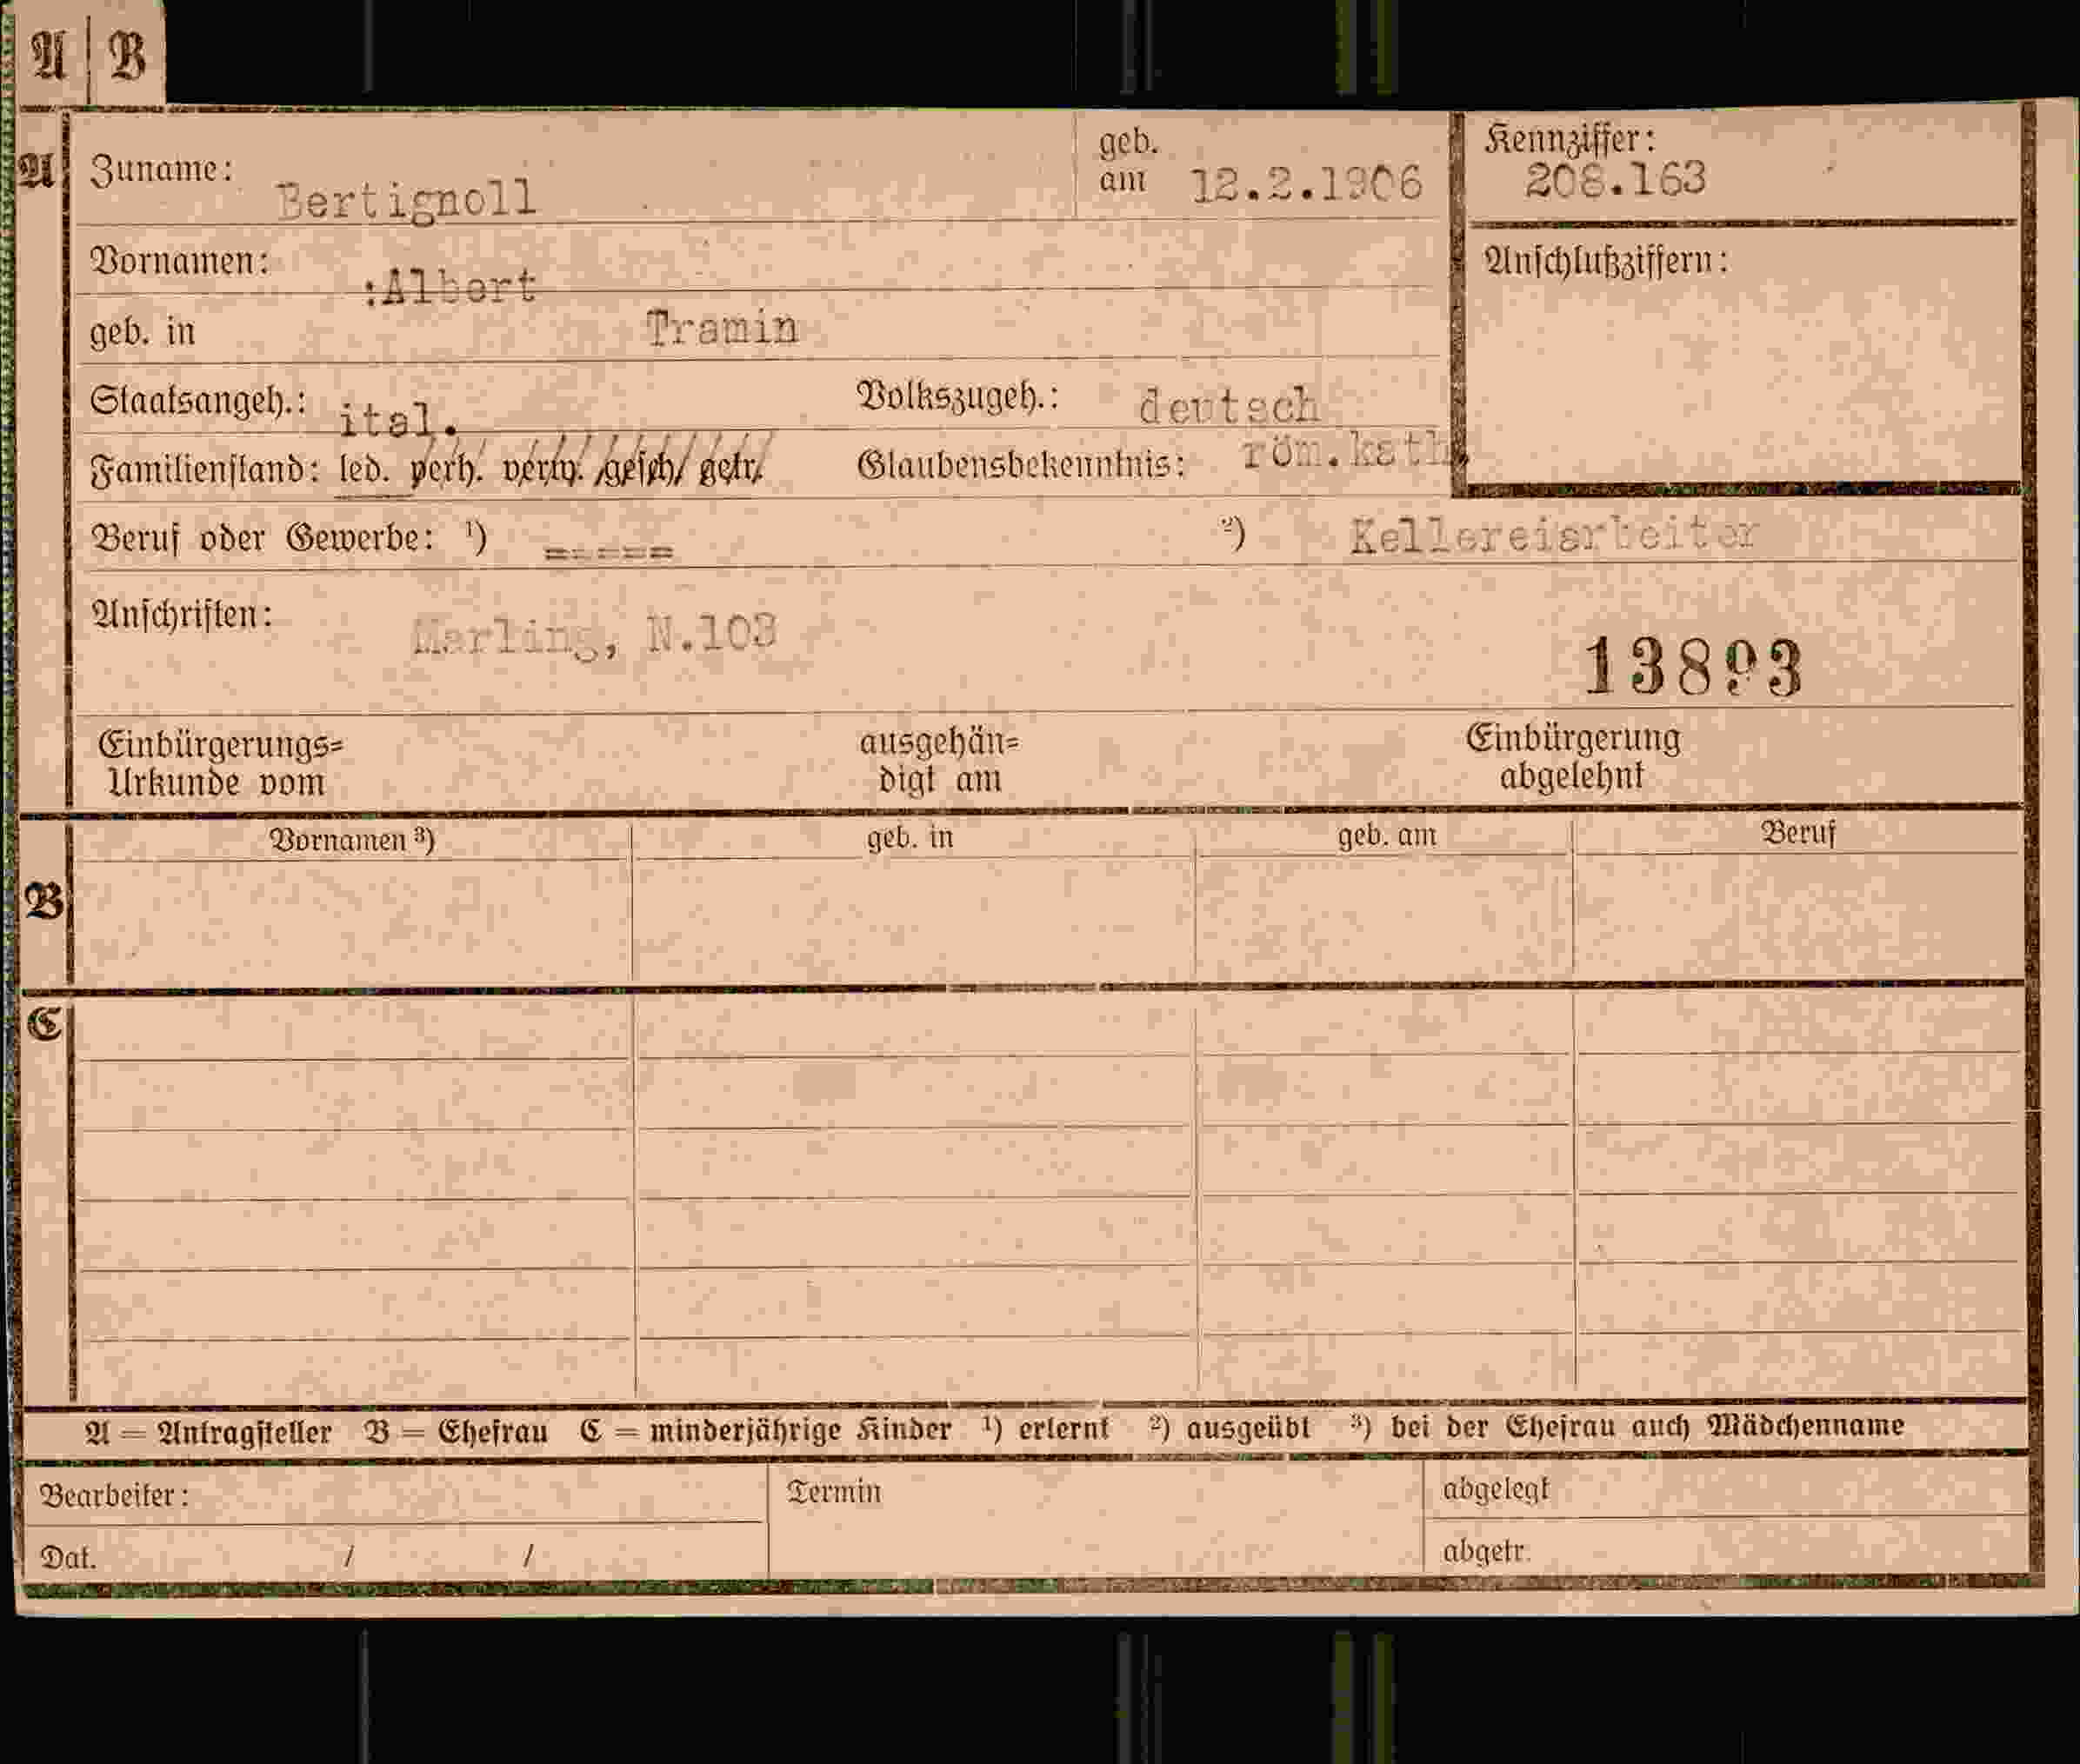 A B
A Zuname: Bertignoll geb. am 12.2.1906 Kennziffer: 208.163
Vornamen: :Albert Anschlußziffern:
geb. in Tramin
Staatsangeh.: ital. Volkszugeh.: deutsch
Familienstand: led. verh. verw. gesch. getr. Glaubensbekenntnis: röm.kath.
Beruf oder Gewerbe: ¹) ===== ²) Kellereiarbeiter
Anschriften: Marling, N.103
13893
Einbürgerungs= ausgehän= Einbürgerung
Urkunde vom digt am abgelehnt
Vornamen ³) geb. in geb. am Beruf
B
C
A = Antragsteller B = Ehefrau C = minderjährige Kinder ¹) erlernt ²) ausgeübt ³) bei der Ehefrau auch Mädchenname
Bearbeiter: Termin abgelegt
Dat. / / abgetr.